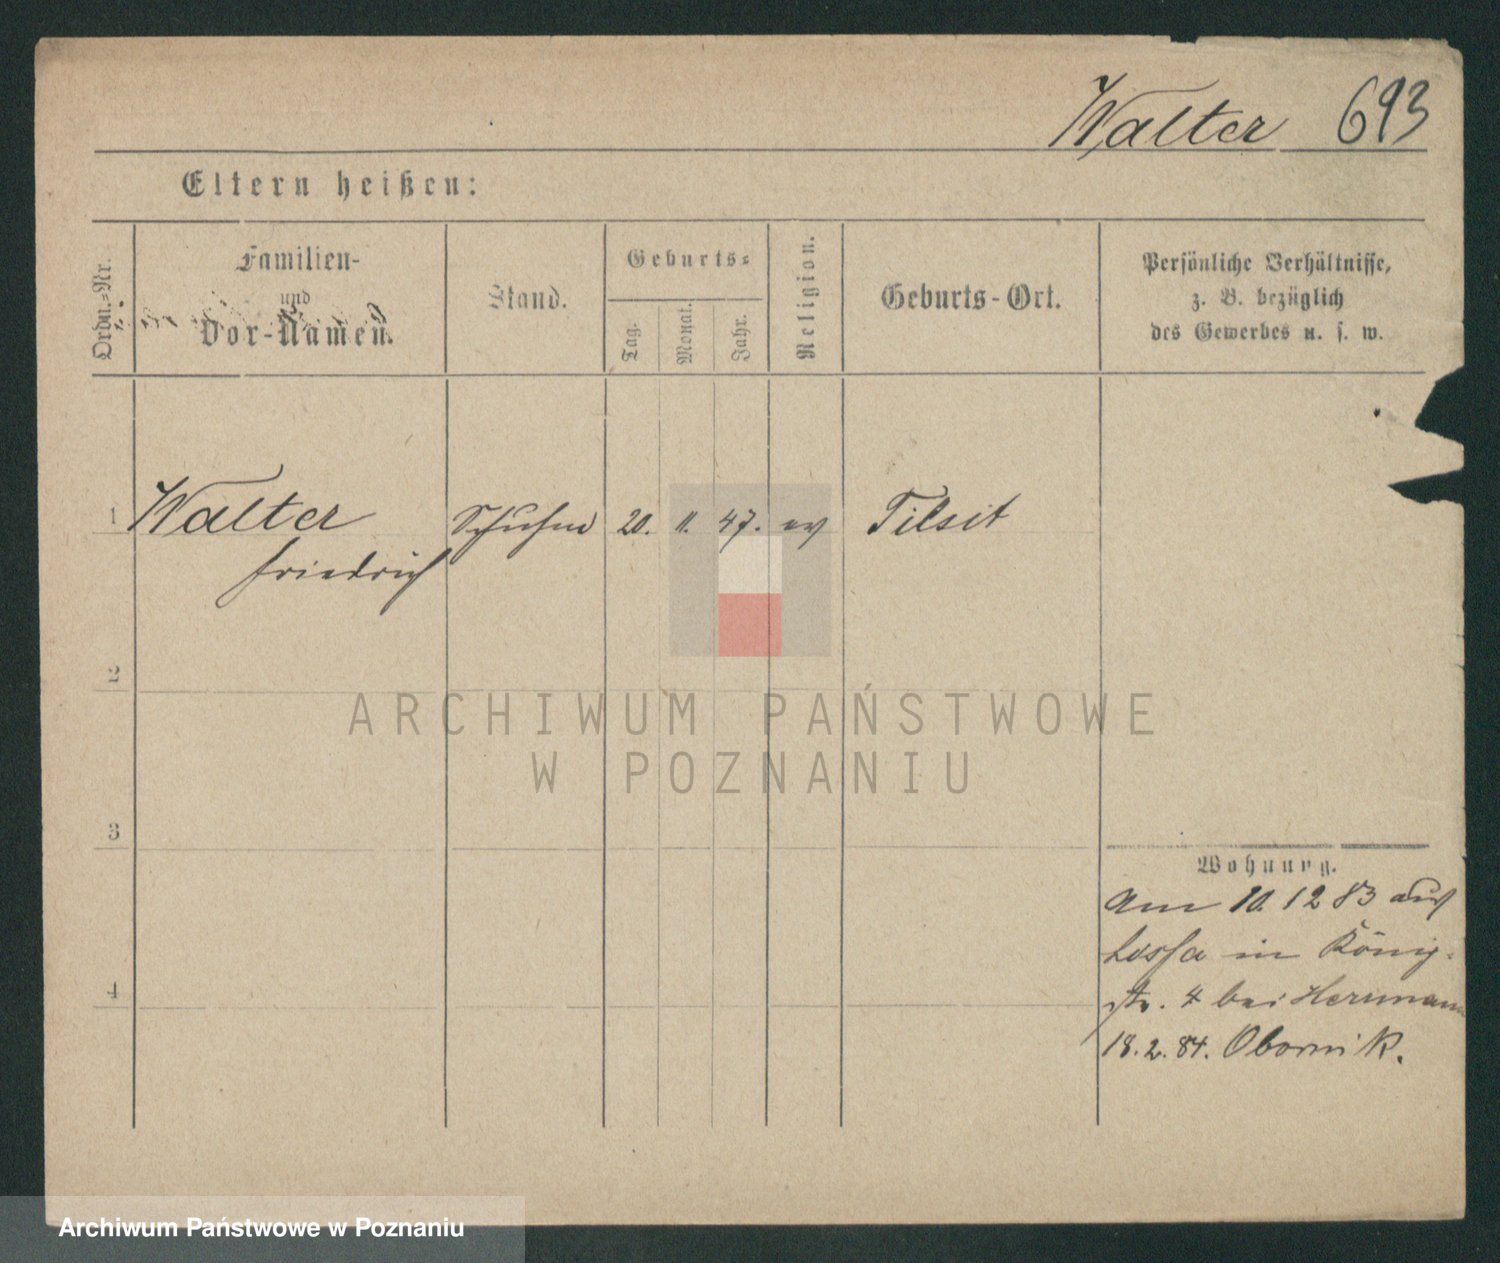 Walter 693
Eltern heißen:
Ordn.=Nr.
Familien-
und
Vor-Namen.
Stand.
Geburts=
Tag.
Monat.
Jahr.
Religion.
Geburts-Ort.
Persönliche Verhältnisse,
z. B. bezüglich
des Gewerbes u. s. w.
1 Walter Schuhm 20. 11. 47. ev Tilsit
Friedrich
2
ARCHIWUM PAŃSTWOWE
W POZNANIU
3
Wohnung.
Am 10. 12 83 aus
in König-
4
str. 4 bei Herrmann
18. 2. 84. Obornik.
Archiwum Państwowe w Poznaniu